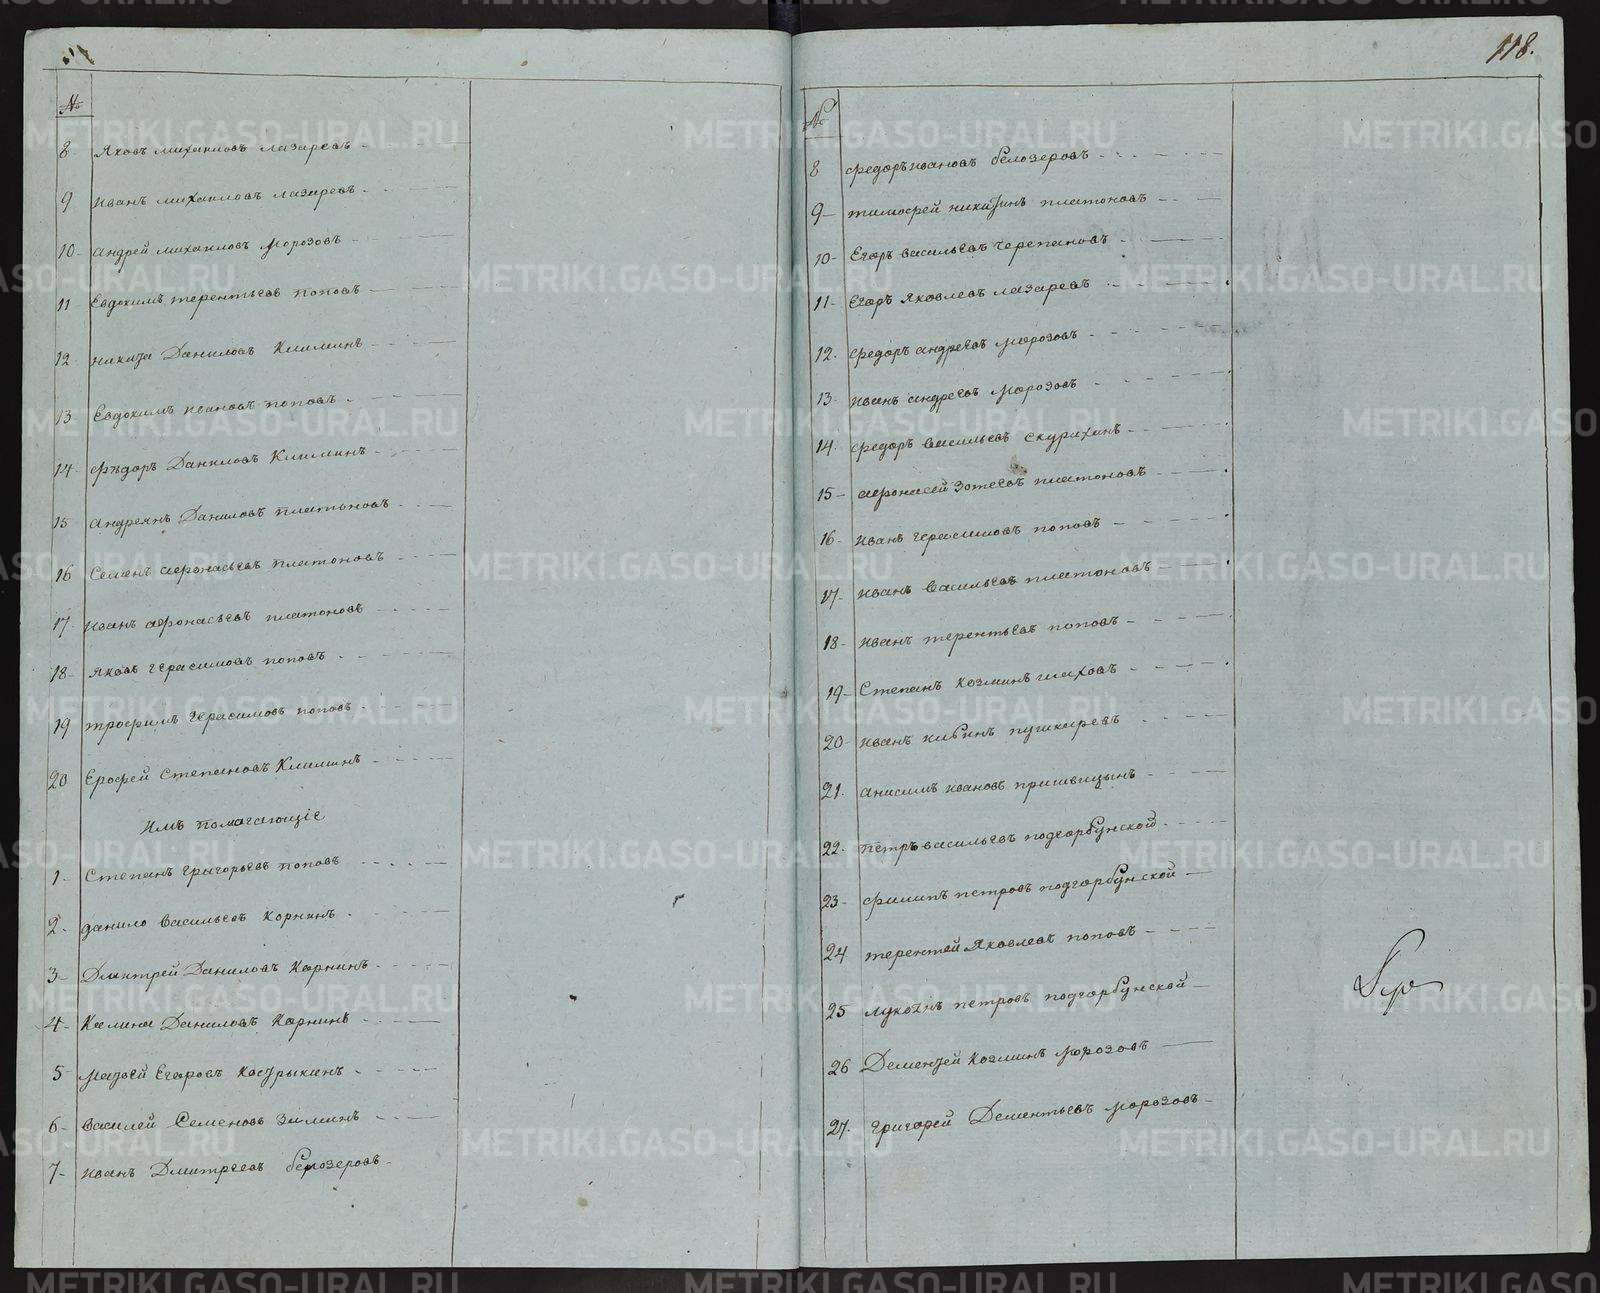 №
8 Яковъ михаиловъ лазаревъ
9 Иванъ михаиловъ лазаревъ
10 андрей михаиловъ Морозовъ
11 Евдокимъ терентьевъ поповъ
12 никита Даниловъ Климинъ
13 Евдокимъ ивановъ поповъ
14 Фѣдоръ Даниловъ Климинъ
15 андреянъ Даниловъ платоновъ
16 Семенъ афонасьевъ платоновъ
17 иванъ афонасьевъ платоновъ
18 яковъ Герасимовъ поповъ
19 трофимъ Герасимовъ поповъ
20 Ерофей Степановъ Климинъ
Имъ помогающіе
1 Степанъ григорьевъ поповъ
2 данило васильевъ Корнинъ
3 Дмитрей Даниловъ Корнинъ
4 Калина Даниловъ Корнинъ
5 Матвей Егоровъ Костры кинъ
6 василей Семеновъ Зиминъ
7 иванъ Дмитреевъ белозеровъ
118.
№
8 федоръ ивановъ белозеровъ
9 тимофей никитинъ платоновъ
10 Егоръ васильевъ черепановъ
11 Егоръ Яковлевъ лазаревъ
12 федоръ андреевъ морозовъ
13 иванъ андреевъ морозовъ
14 федоръ васильевъ скурихинъ
15 афонасей Зотеевъ платоновъ
16 иванъ герасимовъ поповъ
17 иванъ васильевъ платоновъ
18 иванъ терентьевъ поповъ
19 Степанъ козминъ шаховъ
20 иванъ пушкаревъ
21 анисимъ ивановъ пришвицынъ
22 петръ васильевъ подгорбунской
23 филипъ петровъ подгорбунской
24 терентей Яковлевъ поповъ
25 петровъ подгорбунской
26 Дементей козминъ морозовъ
27 григорей Дементьевъ морозовъ
METRIKI.GASO-URAL.RU